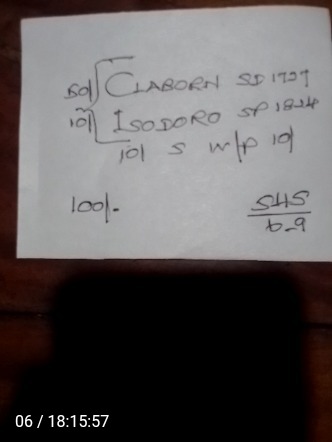 50/ CLABORN SD 1727
10/ ISODORO SP 1824
10/ S W/P 10/
100/-
SHS
6-9
06 / 18:15:57